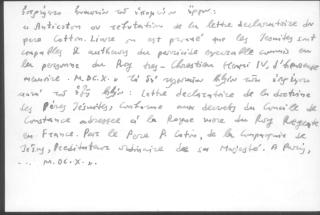 « Anticoton ou refutation de la lettre declaratoire du
pere Cotton. Livre ou est prouvé que les Jesuites sont
coupables & autheurs du parricide execrable commis en
la personne du Roy tres-Chrestien Henri IV, d'heureuse
memoire. M.DC.X.»
: Lettre declaratoire de la doctrine
des Pères Jesuites, conforme aux decrets du Concile de
Constance adressée à la Royne mere du Roy Regente
en France. Par le Pere P. Coton, de la Compagnie de
Jésus, Predicateur ordinaire de sa Majesté. A Paris,
... M.DC.X.».